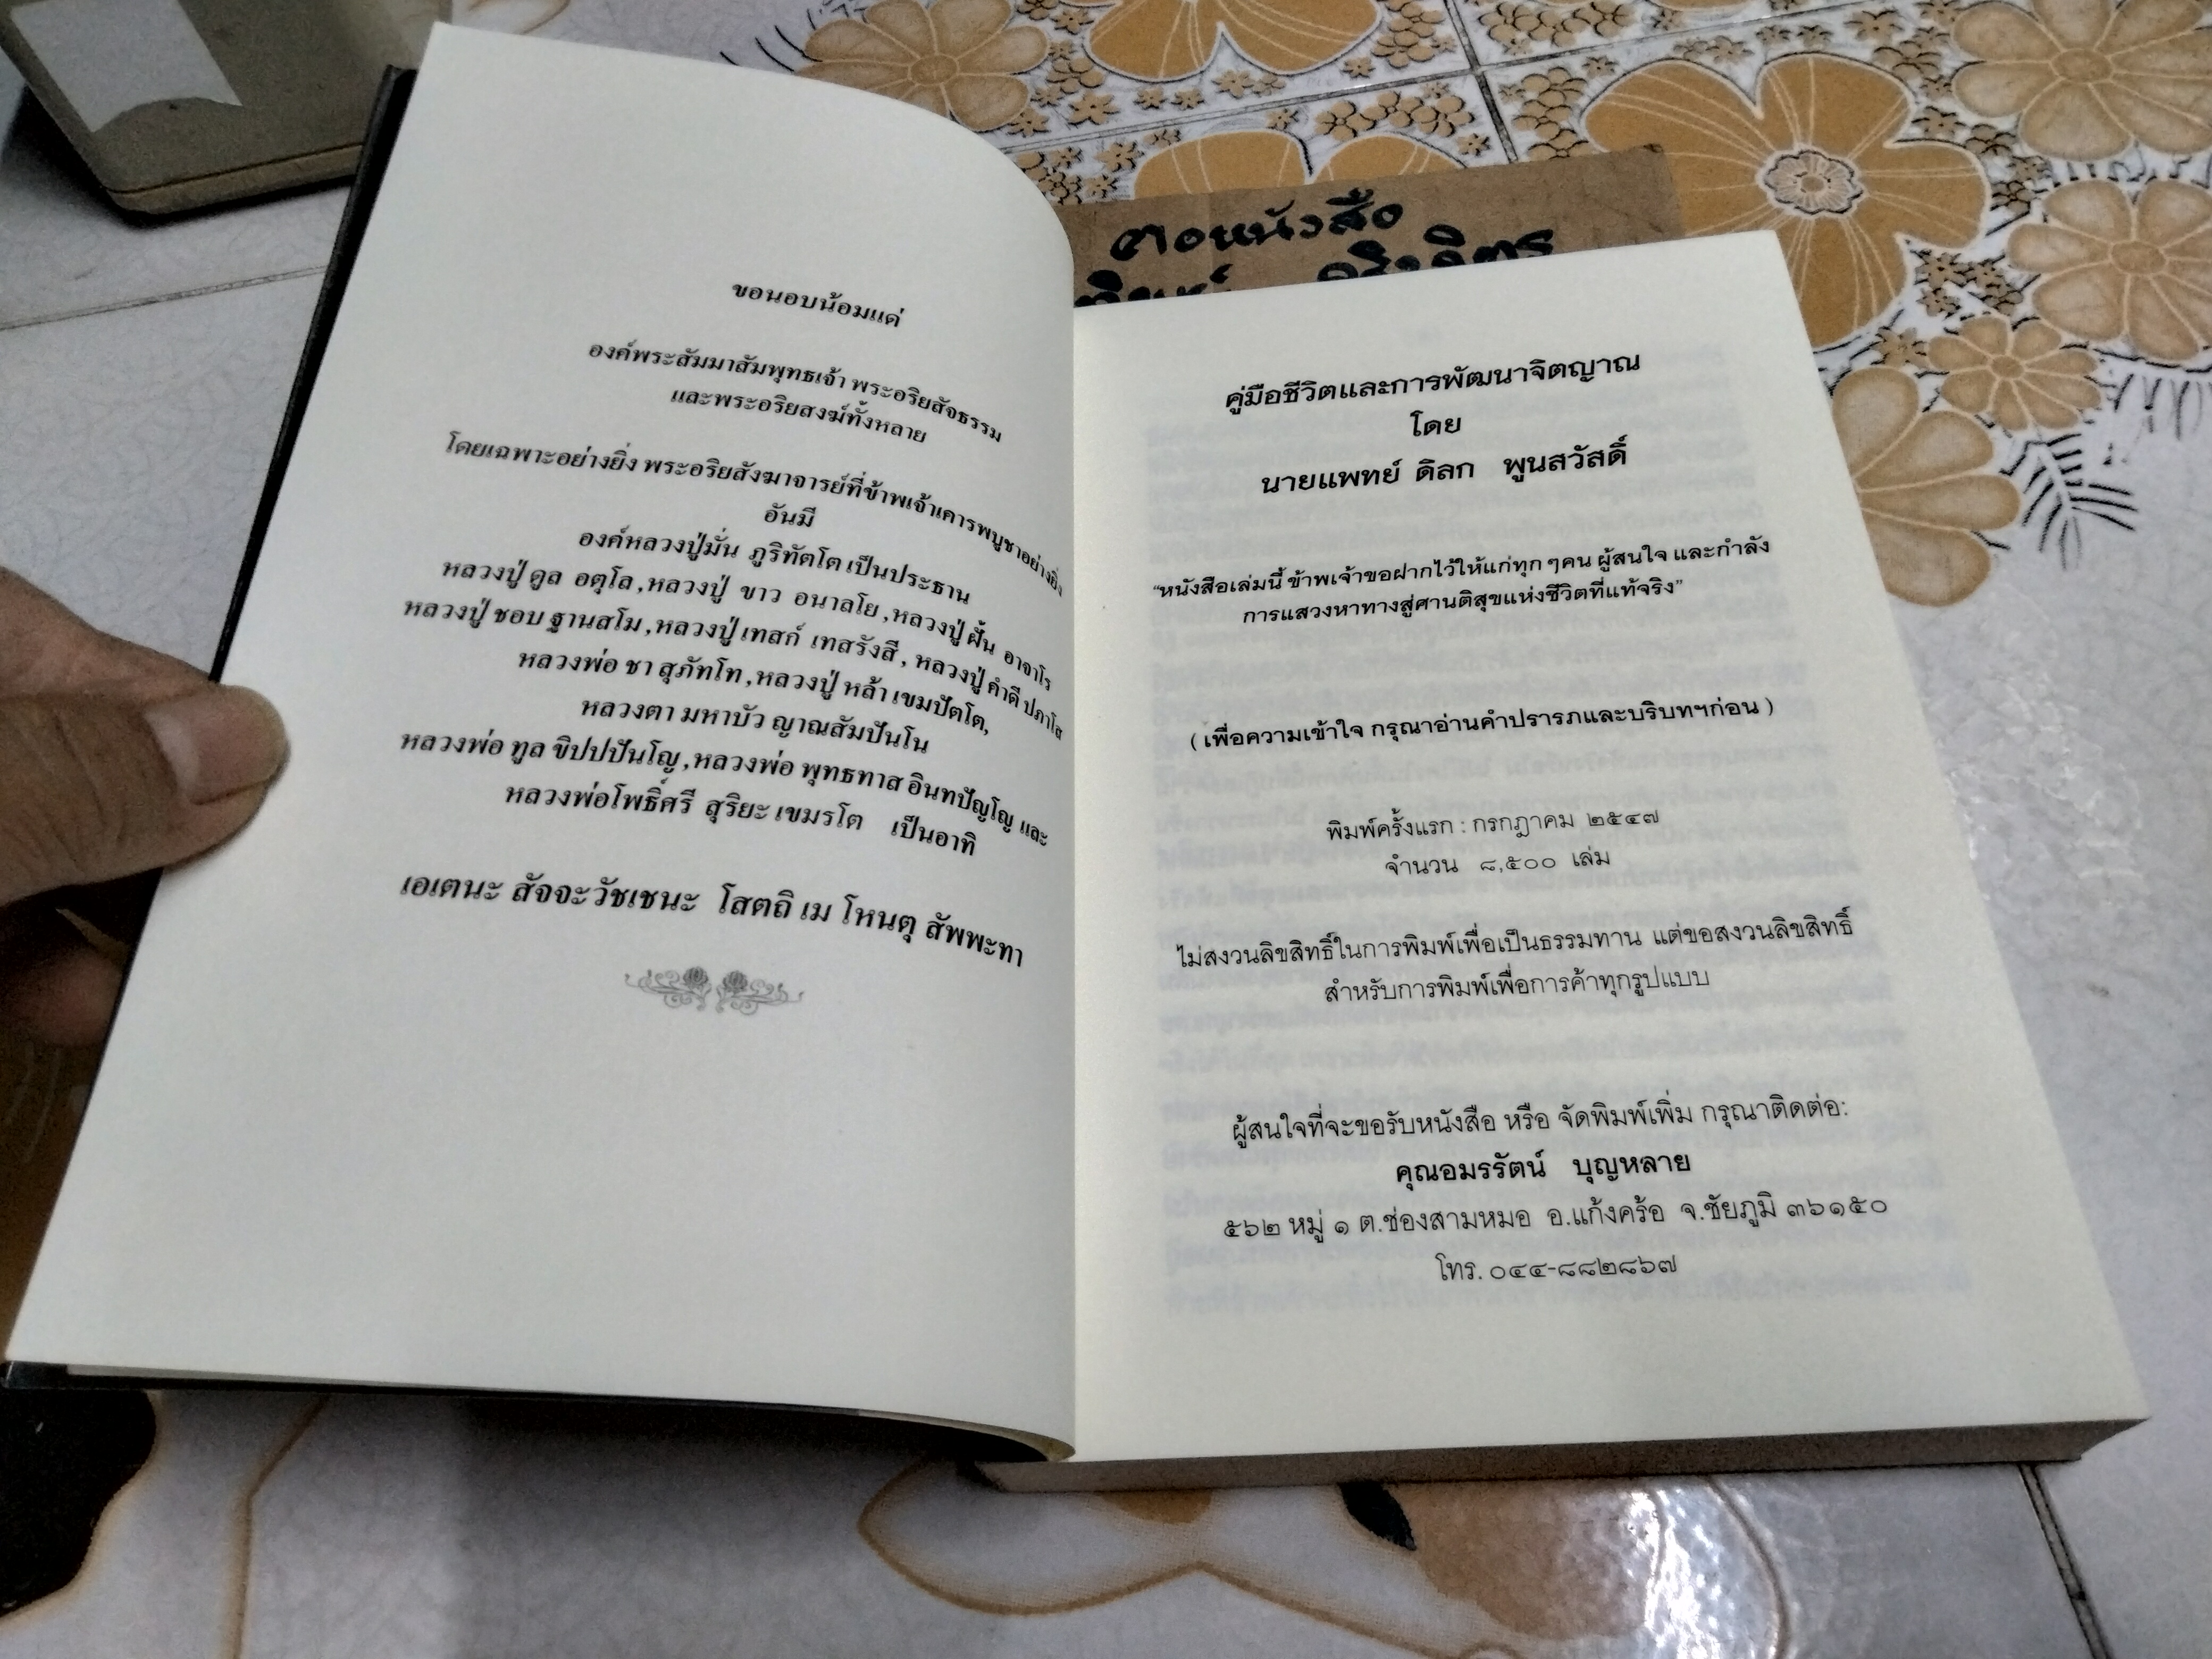 ขอนอบน้อมแด่
องค์พระสัมมาสัมพุทธเจ้า พระอริยสัจธรรม
และพระอริยสงฆ์ทั้งหลาย
โดยเฉพาะอย่างยิ่ง พระอริยสังฆาจารย์ที่ข้าพเจ้าเคารพบูชาอย่างยิ่ง
อันมี
องค์หลวงปู่มั่น ภูริทัตโต เป็นประธาน
หลวงปู่ ดูล อตุโล ,หลวงปู่ ขาว อนาลโย ,หลวงปู่ ฝั้น อาจาโร
หลวงปู่ ชอบ ฐานสโม ,หลวงปู่ เทสก์ เทสรังสี , หลวงปู่ คำดี ปภาโส
หลวงพ่อ ชา สุภัทโท ,หลวงปู่ หล้า เขมปัตโต,
หลวงตา มหาบัว ญาณสัมปันโน
หลวงพ่อ ทูล ขิปปปัญโญ ,หลวงพ่อ พุทธทาส อินทปัญโญ และ
หลวงพ่อโพธิ์ศรี สุริยะ เขมรโต เป็นอาทิ
เอเตนะ สัจจะวัชเชนะ โสตถิ เม โหนตุ สัพพะทา
ตอหนังสือ
คู่มือชีวิตและการพัฒนาจิตญาณ
โดย
นายแพทย์ ดิลก พูนสวัสดิ์
“หนังสือเล่มนี้ ข้าพเจ้าขอฝากไว้ให้แก่ทุก ๆคน ผู้สนใจ และกำลัง
การแสวงหาทางสู่ศานติสุขแห่งชีวิตที่แท้จริง”
( เพื่อความเข้าใจ กรุณาอ่านคำปรารภและบริบทฯก่อน )
พิมพ์ครั้งแรก : กรกฎาคม ๒๕๔๗
จำนวน ๘,๕๐๐ เล่ม
ไม่สงวนลิขสิทธิ์ในการพิมพ์เพื่อเป็นธรรมทาน แต่ขอสงวนลิขสิทธิ์
สำหรับการพิมพ์เพื่อการค้าทุกรูปแบบ
ผู้สนใจที่จะขอรับหนังสือ หรือ จัดพิมพ์เพิ่ม กรุณาติดต่อ:
คุณอมรรัตน์ บุญหลาย
๕๖๒ หมู่ ๑ ต.ช่องสามหมอ อ.แก้งคร้อ จ.ชัยภูมิ ๓๖๑๕๐
โทร. ๐๔๔-๘๘๒๘๖๗